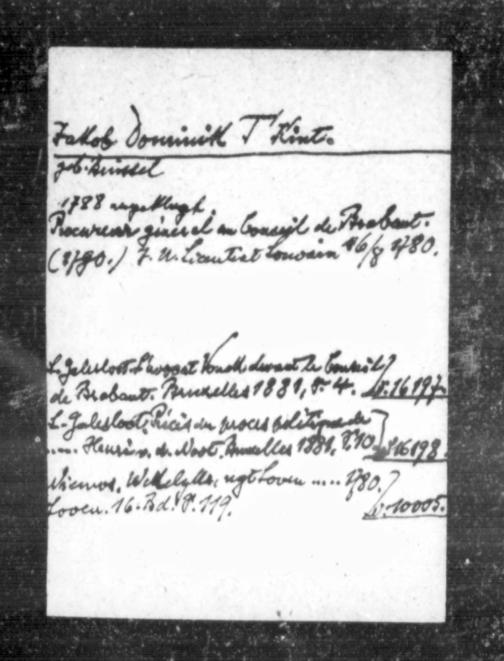 Jakob Dominik T'Kint.
geb. Brüssel
1788 angeklagt,
Procureur général au Conseil de Brabant.
(1790.) J. U. Licentiat Louvain 16/8 1780.
L. Galesloot, Vonck devant le Conseil
de Brabant. Bruxelles 1881, S. 4. W. 16197.
L. Galesloot, Précis du procès politique de
..... Henri v. d. Noot. Bruxelles 1881, S. 10 16198.
Loven ..... 1780.
Loven. 16. Bd. S. 119. 10005.